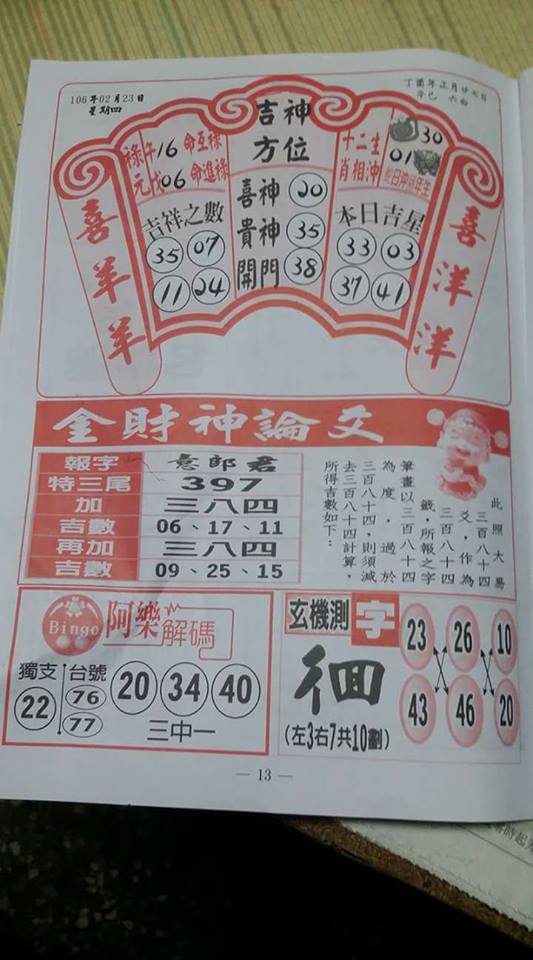 106年02月23日
星期四
丁酉年正月廿七日
辛巳 六白
吉神
方位
喜神 20
貴神 35
開門 38
祿元
午16 命互祿
戊06 命進祿
吉祥之數
35 07
11 24
十二生
肖相沖
30
01
蛇日沖豬年生
本日吉星
33 03
37 41
喜羊羊
喜洋洋
金財神論爻
報字 意郎君
特三尾 397
加 三八四
吉數 06、17、11
再加 三八四
吉數 09、25、15
此照大易
三百八十四
爻，作為
三百八十四
籤，所報之字
筆畫以三百八十四
為度，過於
三百八十四，則須減
去三百八十四計算，
所得吉數如下：
Bingo
阿樂解碼
獨支
22
台號
76
77
20 34 40
三中一
玄機測字
徊
(左3右7共10劃)
23 26 10
43 46 20
— 13 —